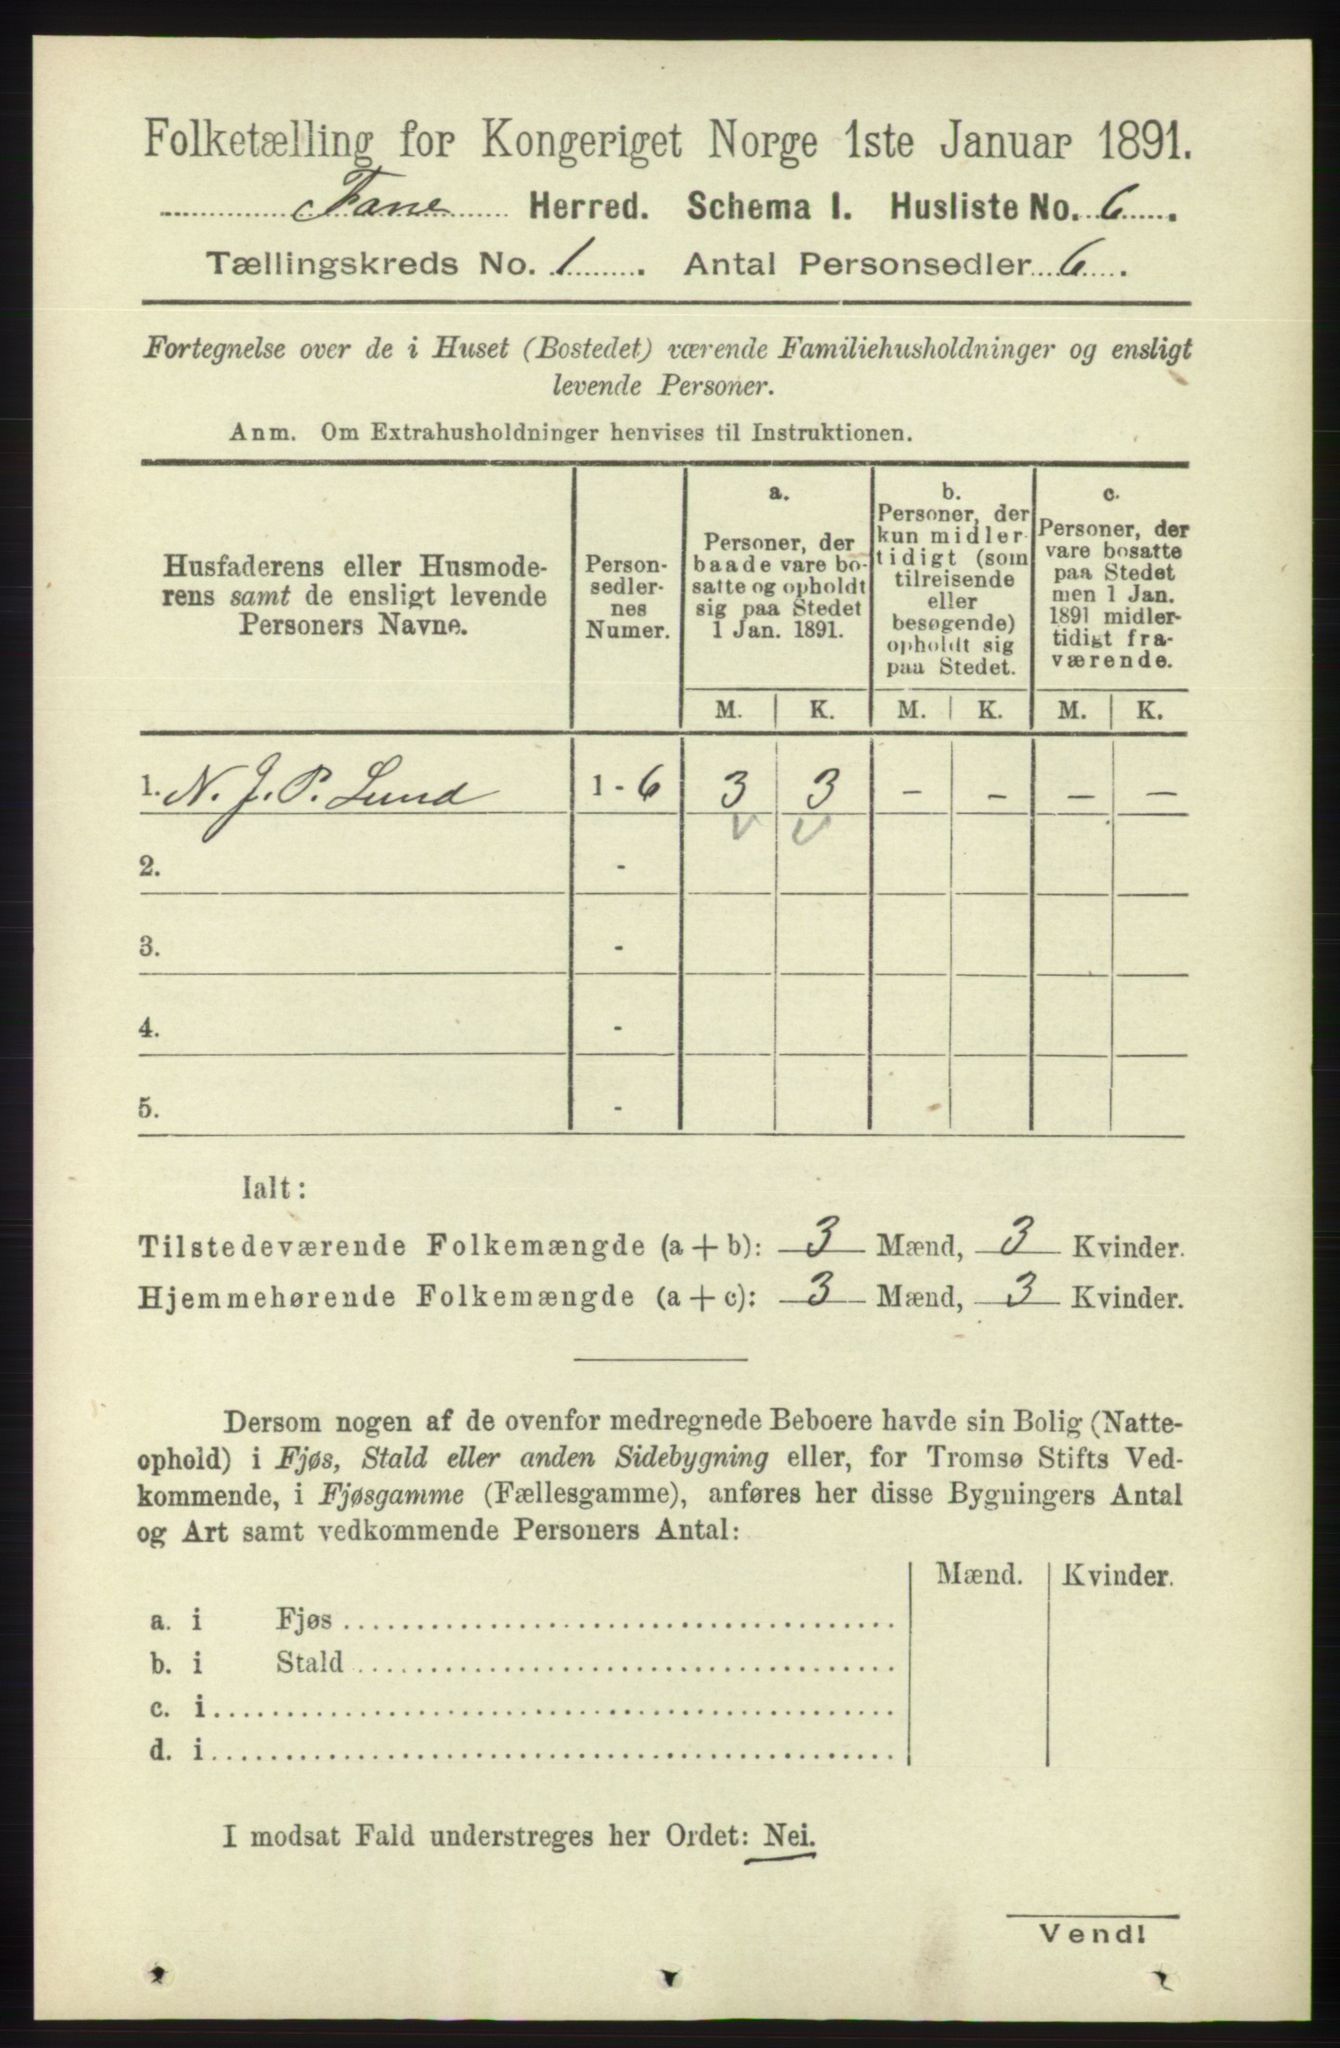 Folketælling for Kongeriget Norge 1ste Januar 1891.
Fane Herred. Schema I. Husliste No. 6.
Tællingskreds No. 1. Antal Personsedler 6.
Fortegnelse over de i Huset (Bostedet) værende Familiehusholdninger og ensligt
levende Personer.
Anm. Om Extrahusholdninger henvises til Instruktionen.
Husfaderens eller Husmode-
rens samt de ensligt levende
Personers Navne.
Person-
sedler-
nes
Numer.
a.
Personer, der
baade vare bo-
satte og opholdt
sig paa Stedet
1 Jan. 1891.
b.
Personer, der
kun midler-
tidigt (som
tilreisende
eller
besøgende)
opholdt sig
paa Stedet.
c.
Personer, der
vare bosatte
paa Stedet
men 1 Jan.
1891 midler-
tidigt fra-
værende.
M. K. M. K. M. K.
1. N. J. P. Lund 1 - 6 3 3 - - - -
2. -
3. -
4. -
5. -
Ialt:
Tilstedeværende Folkemængde (a + b): 3 Mænd, 3 Kvinder.
Hjemmehørende Folkemængde (a + c): 3 Mænd, 3 Kvinder.
Dersom nogen af de ovenfor medregnede Beboere havde sin Bolig (Natte-
ophold) i Fjøs, Stald eller anden Sidebygning eller, for Tromsø Stifts Ved-
kommende, i Fjøsgamme (Fællesgamme), anføres her disse Bygningers Antal
og Art samt vedkommende Personers Antal:
Mænd. Kvinder.
a. i Fjøs
b. i Stald
c. i
d. i
I modsat Fald understreges her Ordet: Nei.
Vend!